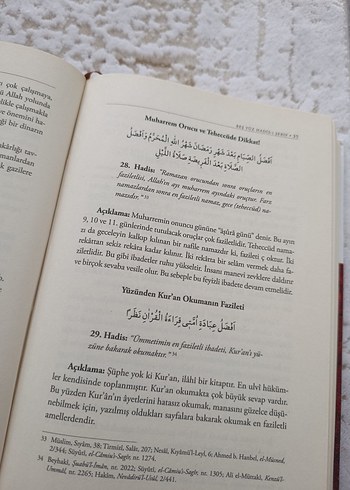 çok çalışmaya,
ü Allah yolunda
dikle çalışmakta
ve önemini ha-
iği bir dinarın
kârlığı zav-
manlardan
k gazilere
Muharrem Orucu ve Teheccüde Dikkat!
أَفْضَلُ الصِّيَامِ بَعْدَ شَهْرِ رَمَضَانَ شَهْرُ اللّٰهِ الْمُحَرَّمُ وَأَفْضَلُ
الصَّلَاةِ بَعْدَ الْفَرِيضَةِ صَلَاةُ اللَّيْلِ
28. Hadis: "Ramazan orucundan sonra oruçların en
faziletlisi, Allah'ın ayı muharrem ayındaki oruçtur. Farz
namazlardan sonra en faziletli namaz, gece (teheccüd) na-
mazıdır." 33
Açıklama: Muharremin onuncu gününe "âşûrâ günü" denir. Bu ayın
9, 10 ve 11. günlerinde tutulacak oruçlar çok faziletlidir. Teheccüd nama-
zı da geceleyin kalkıp kılınan bir nafile namazdır ki, fazileti ç oktur. İki
rekâttan sekiz rekâta kadar kılınır. İki rekâtta bir selâm vermek daha fa-
ziletlidir. Bu gibi ibadetler ruhu yükseltir. İnsanı manevi zevklere daldırır
ve birçok sevaba vesile olur. Bu sebeple bu feyizli ibadete devam etmelidir.
Yüzünden Kur'an Okumanın Fazileti
أَفْضَلُ عِبَادَةِ أُمَّتِي قِرَاءَةُ الْقُرْآنِ نَظَرًا
29. Hadis: "Ümmetimin en faziletli ibadeti, Kur'an'ı yü-
züne bakarak okumaktır." 34
Açıklama: Şüphe yok ki Kur'an, ilâhi bir kitaptır. En ulvi hüküm-
ler kendisinde toplanmıştır. Kur'an okumakta çok büyük sevap vardır.
Bu yüzden Kur'an'ın âyerlerini hatasız okumak, manasını güzelce düşü-
nebilmek için, yazılmış oldukları sayfalara bakarak okumak en faziletli
amellerdendir.
33 Müslim, Sıyâm, 38; Tirmizî, Salât, 207; Nesâî, Kıyâmü'l-Leyl, 6; Ahmed b. Hanbel, el-Müsned,
2/344; Süyûtî, el-Câmiu's-Sagîr, nr. 1274.
34 Beyhakî, Şuabü'l-Îmân, nr. 2022; Süyûtî, el-Câmiu's-Sagîr, nr. 1305; Ali el-Müttakî, Kenzü'l-
Ummâl, nr. 2265; Hakîm, Nevâdirü'l-Usûl, 2/441.